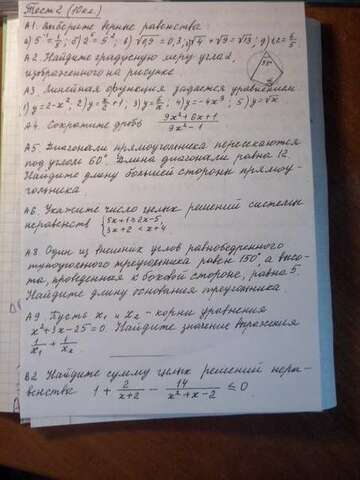 Тест 2 (10кл.)
А1. Выберите верные равенства:
а) 5⁻¹=1/5; б) 2⁵=5²; в) √0,9=0,3; г) √4+√9=√13; д)
А2. Найдите градусную меру угла 2,
изображенного на рисунке.
35°
А3. Линейная функция задается уравнением
1) y=2-x², 2) y=x/2+1, 3) y=6/x, 4) y=-4x³, 5) y=√x
А4. Сократите дробь (9x²+6x+1)/(9x²-1)
А5. Диагонали прямоугольника пересекаются
под углом 60°. Длина диагонали равна 12.
Найдите длину большей стороны прямоу-
гольника.
А6. Укажите число целых решений системы
неравенств { 5x+1≥2x-5,
3x+2<x+4.
А8. Один из внешних углов равнобедренного
тупоугольного треугольника равен 150°, а высо-
та, проведенная к боковой стороне, равна 5.
Найдите длину основания треугольника.
А9. Пусть x₁ и x₂ - корни уравнения
x²+3x-25=0. Найдите значение выражения
1/x₁ + 1/x₂
В2. Найдите сумму целых решений нера-
венства 1 + 2/(x+2) - 14/(x²+x-2) ≤0